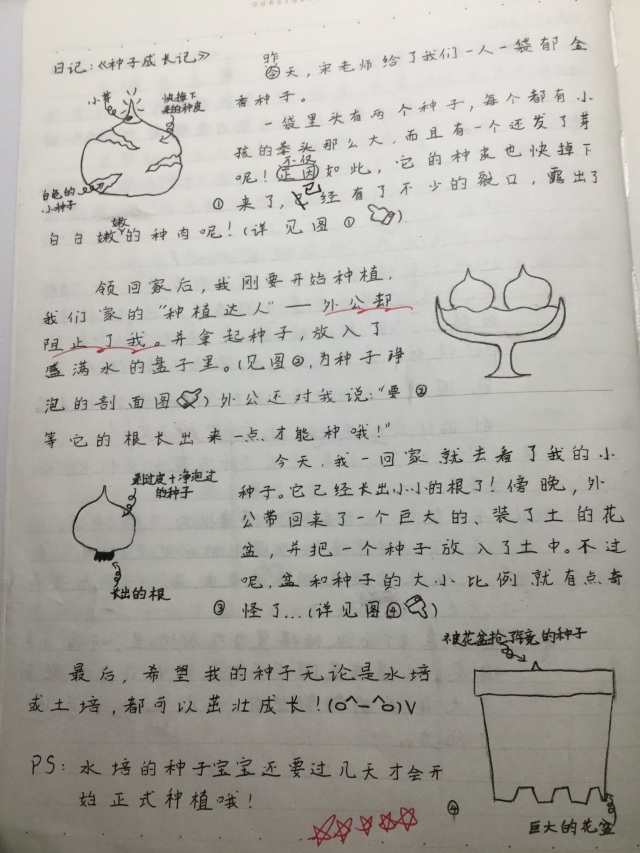 日记:《种子成长记》
昨
天，宋老师给了我们一人一袋郁金
香种子。
一袋里头有两个种子，每个都有小
孩的拳头那么大，而且有一个还发了芽
不仅
呢！如此，它的种皮也快掉下
来了，已经有了不少的裂口，露出了
白白嫩嫩的种肉呢！(详见图①)
小芽
快掉下
来的种皮
白色的
小种子
①
领回家后，我刚要开始种植，
我们家的“种植达人”——外公却
阻止了我。并拿起种子，放入了
盛满水的盘子里。(见图②,为种子净
泡的剖面图)外公还对我说:“要
②
等它的根长出来一点才能种哦！”
今天，我一回家就去看了我的小
种子。它已经长出小小的根了！傍晚，外
公带回来了一个巨大的、装了土的花
盆，并把一个种子放入了土中。不过
呢，盆和种子的大小比例就有点奇
怪了...(详见图④)
剥过皮+净泡过
的种子
长出的根
③
被花盆抢了镜的种子
最后，希望我的种子无论是水培
或土培，都可以茁壮成长！(o^-^o)V
PS: 水培的种子宝宝还要过几天才会开
始正式种植哦！
④
巨大的花盆